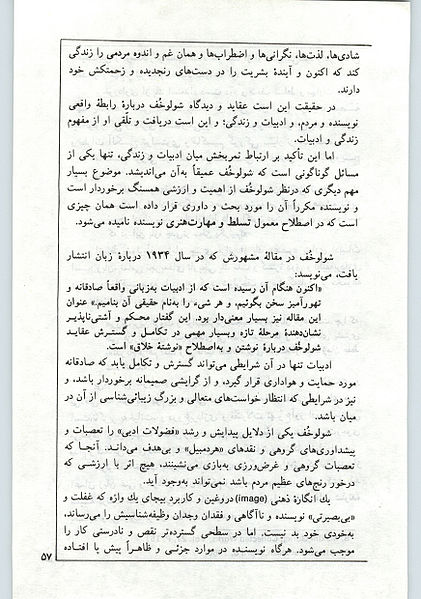 شادی‌ها، لذت‌ها، نگرانی‌ها و اضطراب‌ها و همان غم و اندوه مردمی را زندگی
کند که اکنون و آیندهٔ بشریت را در دست‌های رنجدیده و زحمتکش خود
دارند.
در حقیقت این است عقاید و دیدگاه شولوخُف دربارهٔ رابطهٔ واقعی
نویسنده و مردم، و ادبیات و زندگی؛ و این است دریافت و تلقّی او از مفهوم
زندگی و ادبیات.
اما این تأکید بر ارتباط ثمربخش میان ادبیات و زندگی، تنها یکی از
مسائل گوناگونی است که شولوخُف عمیقاً به‌آن می‌اندیشد. موضوع بسیار
مهم دیگری که درنظر شولوخُف از اهمیت و ارزشی همسنگ برخوردار است
و نویسنده مکرراً آن را مورد بحث و داوری قرار داده است همان چیزی
است که در اصطلاح معمول تسلط و مهارت‌هنری نویسنده نامیده می‌شود.
شولوخُف در مقالهٔ مشهورش که در سال ۱۹۳۴ دربارهٔ زبان انتشار
یافت، می‌نویسد:
«اکنون هنگام آن رسیده است که از ادبیات به‌زبانی واقعاً صادقانه و
تهورآمیز سخن بگوئیم، و هر شیء را به‌نام حقیقی آن بنامیم.» عنوان
این مقاله نیز بسیار معنی‌دار بود. این گفتار محکم و آشتی‌ناپذیر
نشان‌دهندهٔ مرحلهٔ تازه وبسیار مهمی در تکامل و گسترش عقاید
شولوخُف دربارهٔ نوشتن و به‌اصطلاح «نوشتهٔ خلاق» است.
ادبیات تنها در آن شرایطی می‌تواند گسترش و تکامل یابد که صادقانه
مورد حمایت و هواداری قرار گیرد، و از گرایشی صمیمانه برخوردار باشد، و
نیز در شرایطی که انتظار خواست‌های متعالی و بزرگ زیبائی‌شناسی از آن در
میان باشد.
شولوخُف یکی از دلایل پیدایش و رشد «فضولات ادبی» را تعصبات و
پیشداوری‌های گروهی و نقدهای «هردمبیل» و بی‌هدف می‌داند. آنجا که
تعصبات گروهی و غرض‌ورزی به‌بازی می‌نشینند، هیچ اثر با ارزشی که
درخور رنج‌های عظیم مردم باشد نمی‌تواند به‌وجود آید.
یك انگارهٔ ذهنی (image) دروغین و کاربرد بیجای یك واژه که غفلت و
«بی‌بصیرتی» نویسنده و ناآگاهی و فقدان وجدان وظیفه‌شناسیش را می‌رساند،
به‌خودی خود بد نیست. اما در سطحی گسترده‌تر نقص و نادرستی کار را
موجب می‌شود. هرگاه نویسنده در موارد جزئی و ظاهراً پیش پا افتاده
۵۷